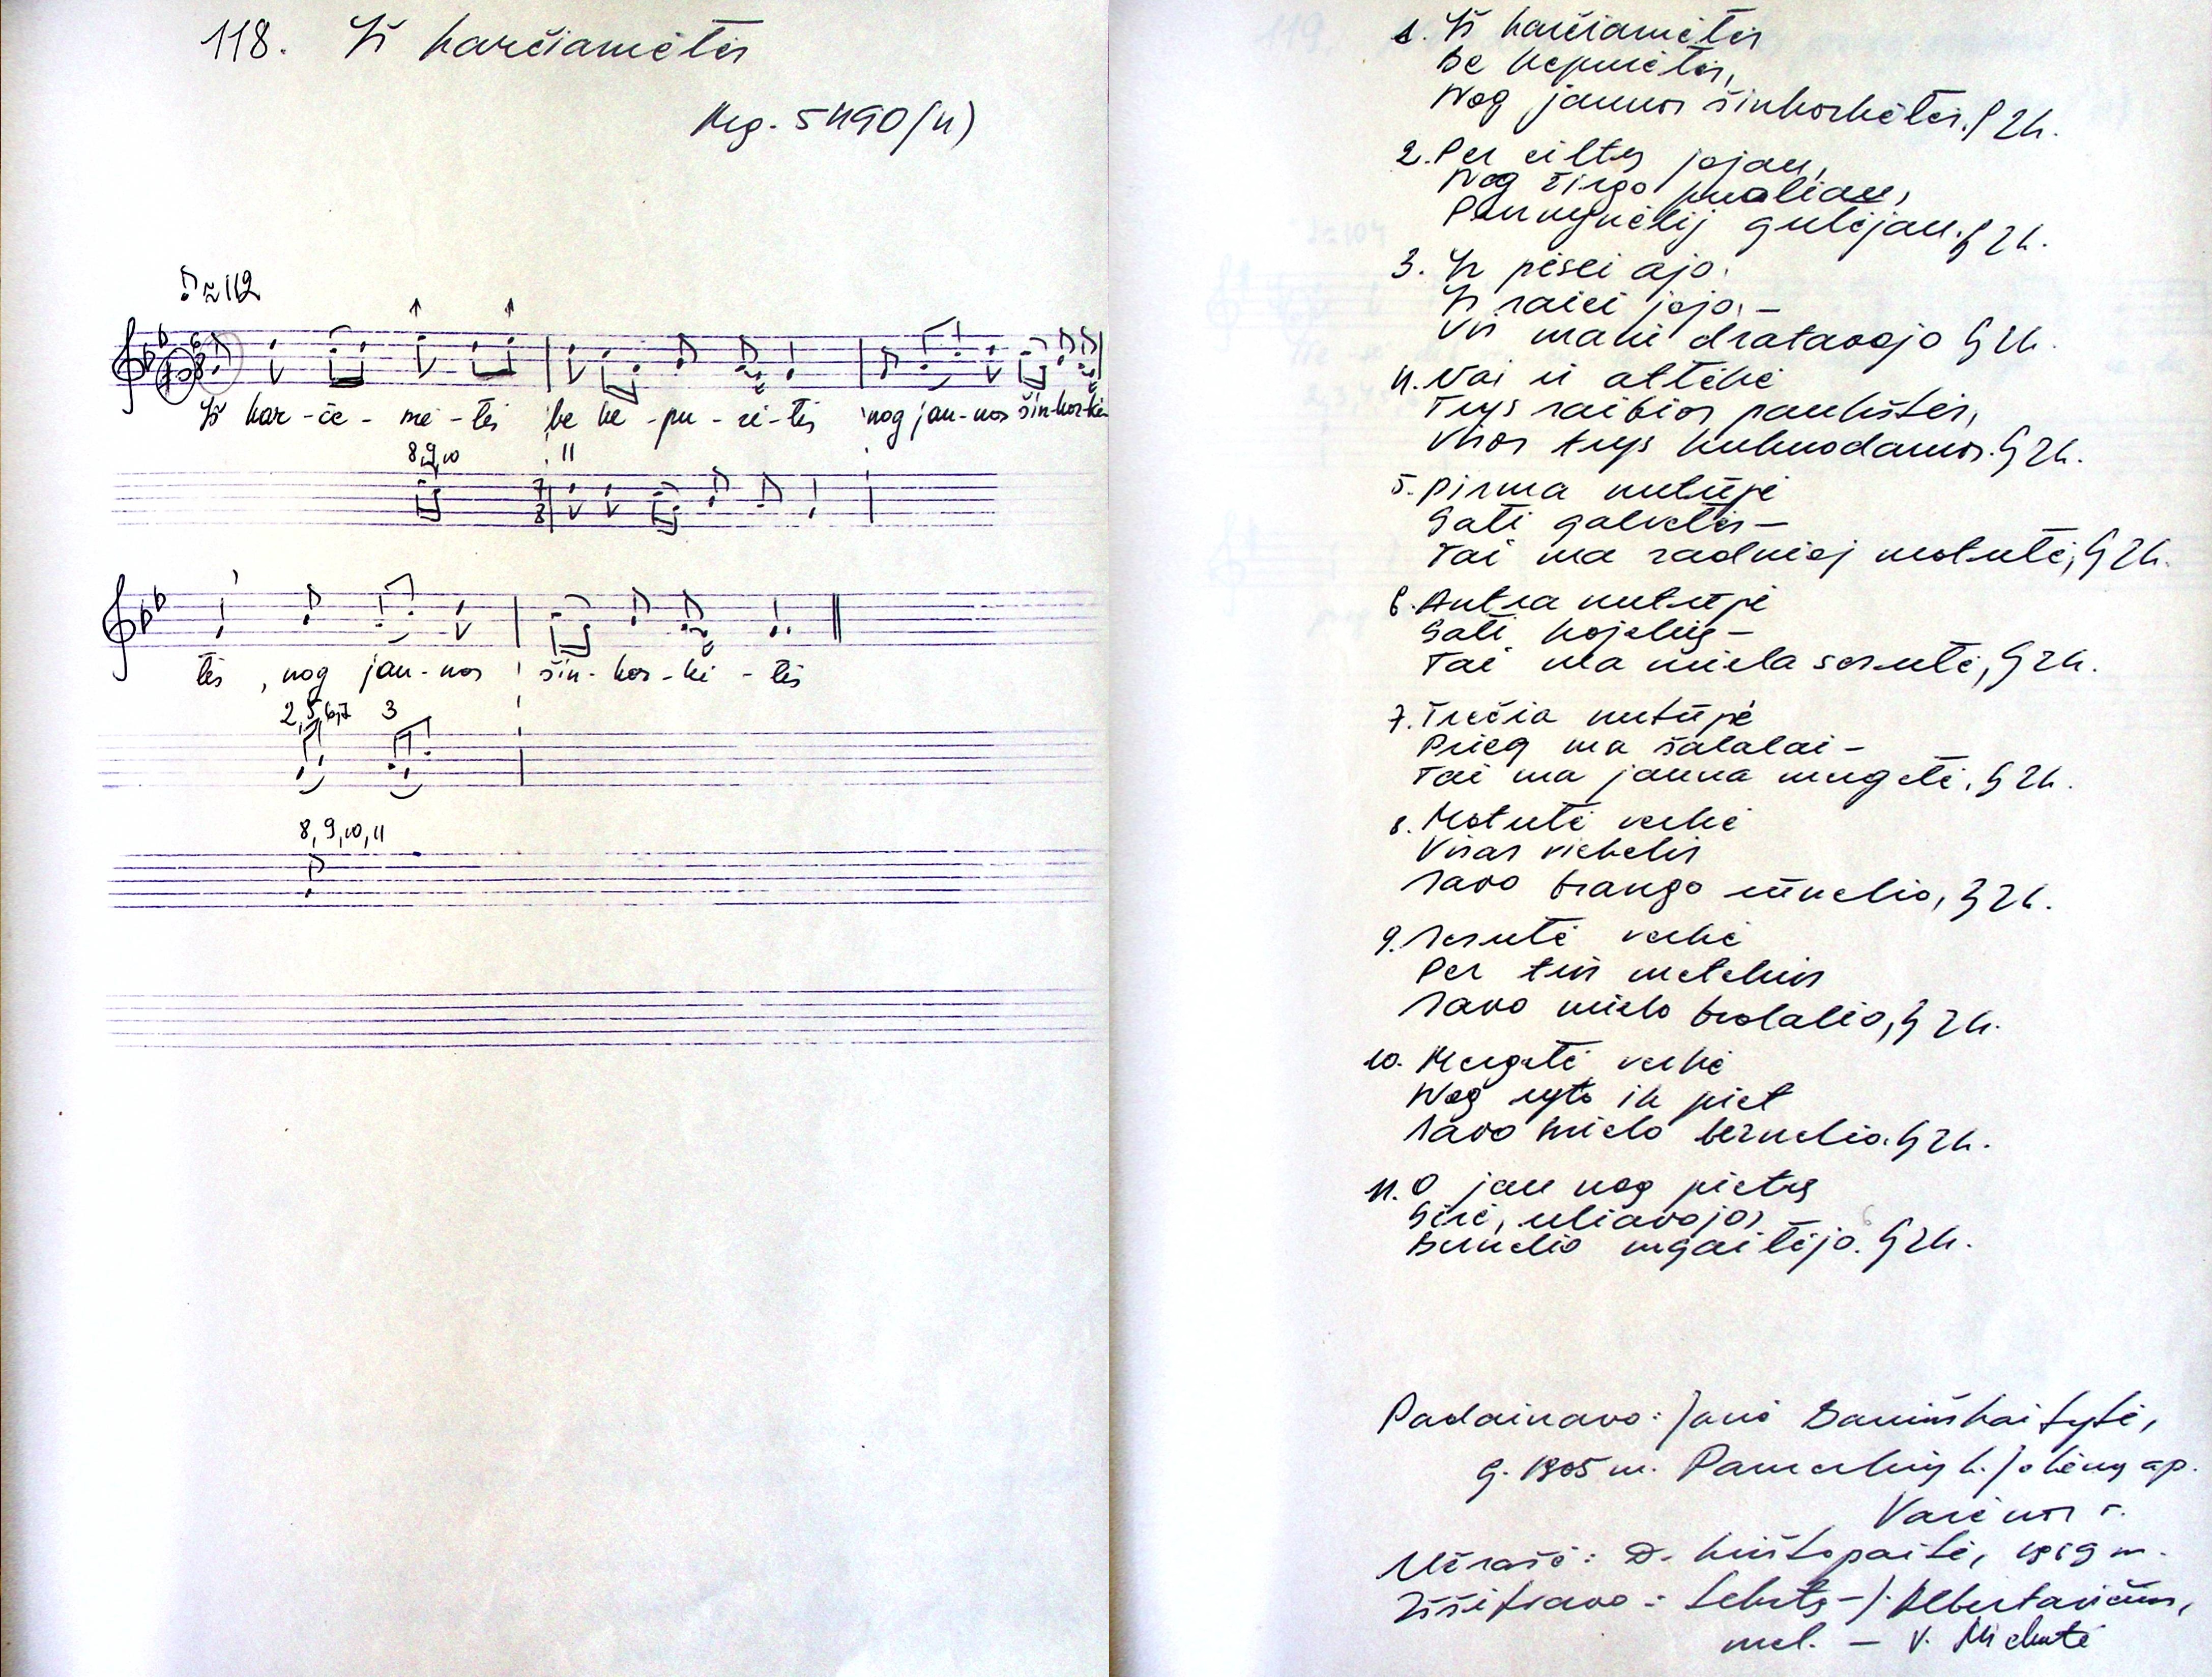 118. Iš karčiamėtės
Mg. 5490(4)
♪≈112
Iš kar-če-mė-tės be ke-pu-rė-tės nog jau-nos šin-kor-kė-
8,9,10 11
tės, nog jau-nos šin-kor-kė-tės
2,5,6,7 3
8,9,10,11
1. Iš karčiamėtės
Be kepurėtės,
Nog jaunos šinkorkėtės. } 2k.
2. Per eiltus jojau,
Nog žirgo puoliau,
Purvynėlij gulėjau. } 2k.
3. Ir pėsti ajo,
Ir raiti jojo, –
Visi mani dratavojo } 2k.
4. Vai ir atlėkė
Trys raibios paukštės,
Visos trys kukuodamos. } 2k.
5. Pirma nutūpė
Gali galvelės –
Tai ma radnioj motutė, } 2k.
6. Antra nutūpė
Gali kojelių –
Tai ma miela sesutė, } 2k.
7. Trečia nutūpė
Prieg ma šalalai –
Tai ma jauna mergelė. } 2k.
8. Motutė verkė
Visas viekelis
Savo brango sūnelio, } 2k.
9. Sesutė verkė
Per tris metelius
Savo mielo brolalio, } 2k.
10. Mergelė verkė
Nog ryto ik piet
Savo mielo bernelio. } 2k.
11. O jau nog pietų
Gėrė, uliavojo,
Bernelio ngailėjo. } 2k.
Padainavo: Janė Barniškaitytė,
g. 1905 m. Pamerkių k. Jakėnų ap.
Varėnos r.
Užrašė: D. Krištopaitė, 1969 m.
Iššifravo: tekstą – J. Albertavičius,
mel. – V. Mickutė